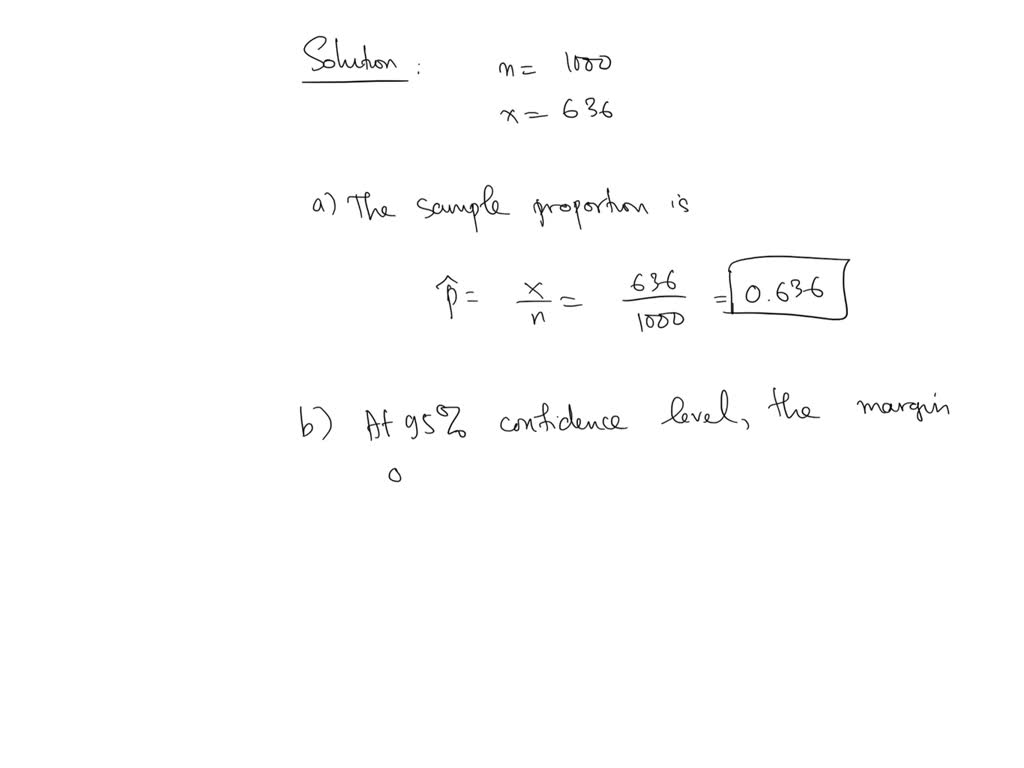 Solution : n = 1000
x = 636
a) The sample proportion is
p̂ = x/n = 636/1000 = 0.636
b) At 95% confidence level, the margin
o